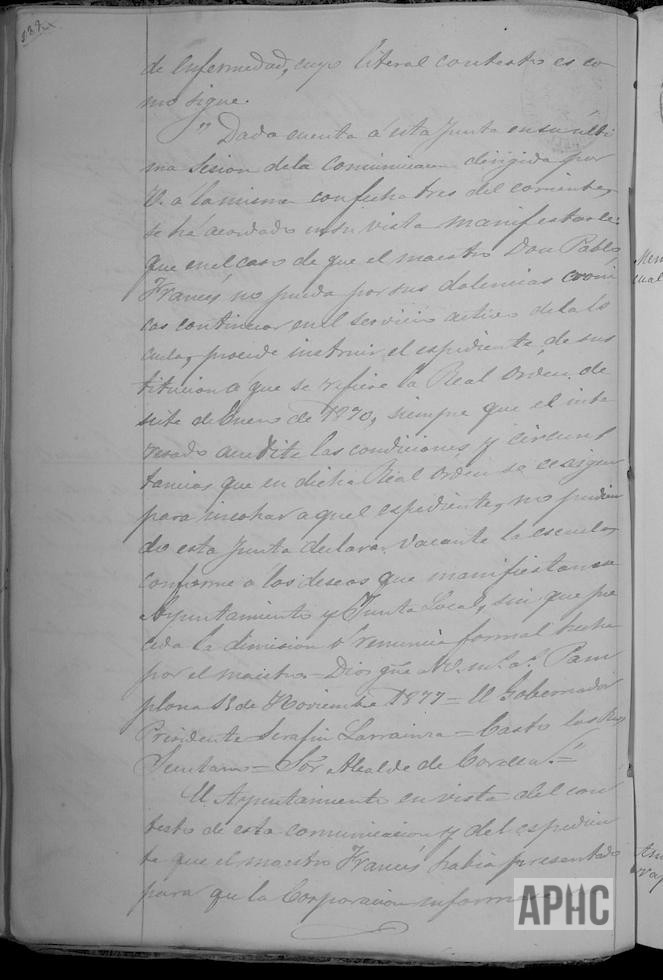 de Enfermedad, cuyo literal contesto es co
mo sigue.
" Dada cuenta á esta Junta en su últi
ma sesion de la comunicacion dirigida por
V. á la misma con fecha tres del corriente,
se ha acordado en su vista manifestarle:
que en el caso de que el maestro Don Pablo
Francés no pueda por sus dolencias cróni
cas continuar en el servicio activo de la Es
cuela, procede instruir el espediente de sus
titucion á que se refiere la Real Orden de
siete de Enero de 1870, siempre que el inte
resado acredite las condiciones y circuns
tancias que en dicha Real Orden se
para incohar aquel espediente, no pudien
do esta Junta declarar vacante la escuela,
conforme á los deseos que manifiestan ese
Ayuntamiento y Junta Local, sin que pre
ceda la dimision ó renuncia formal hecha
por el maestro = Dios gûe a V. m.s a.s Pam
plona de Noviembre 1877 = El Gobernador
Presidente Serafin Larrainza = Casto
Secretario = Sôr Alcalde de Corella." =
El Ayuntamiento en vista del con
testo de esta comunicacion y del espedien
te que el maestro Francés habia presentado
para que la Corporacion
APHC